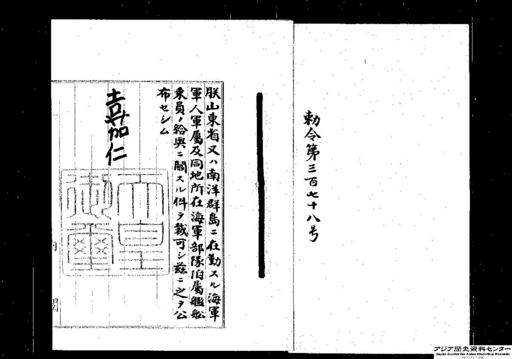 勅令第三百七十八号
朕山東省又ハ南洋群島ニ在勤スル海軍
軍人軍属及同地所在海軍部隊附属艦船
乗員ノ給与ニ関スル件ヲ裁可シ茲ニ之ヲ公
布セシム
嘉仁
天皇
御璽
アジア歴史資料センター
Japan Center for Asian Historical Records